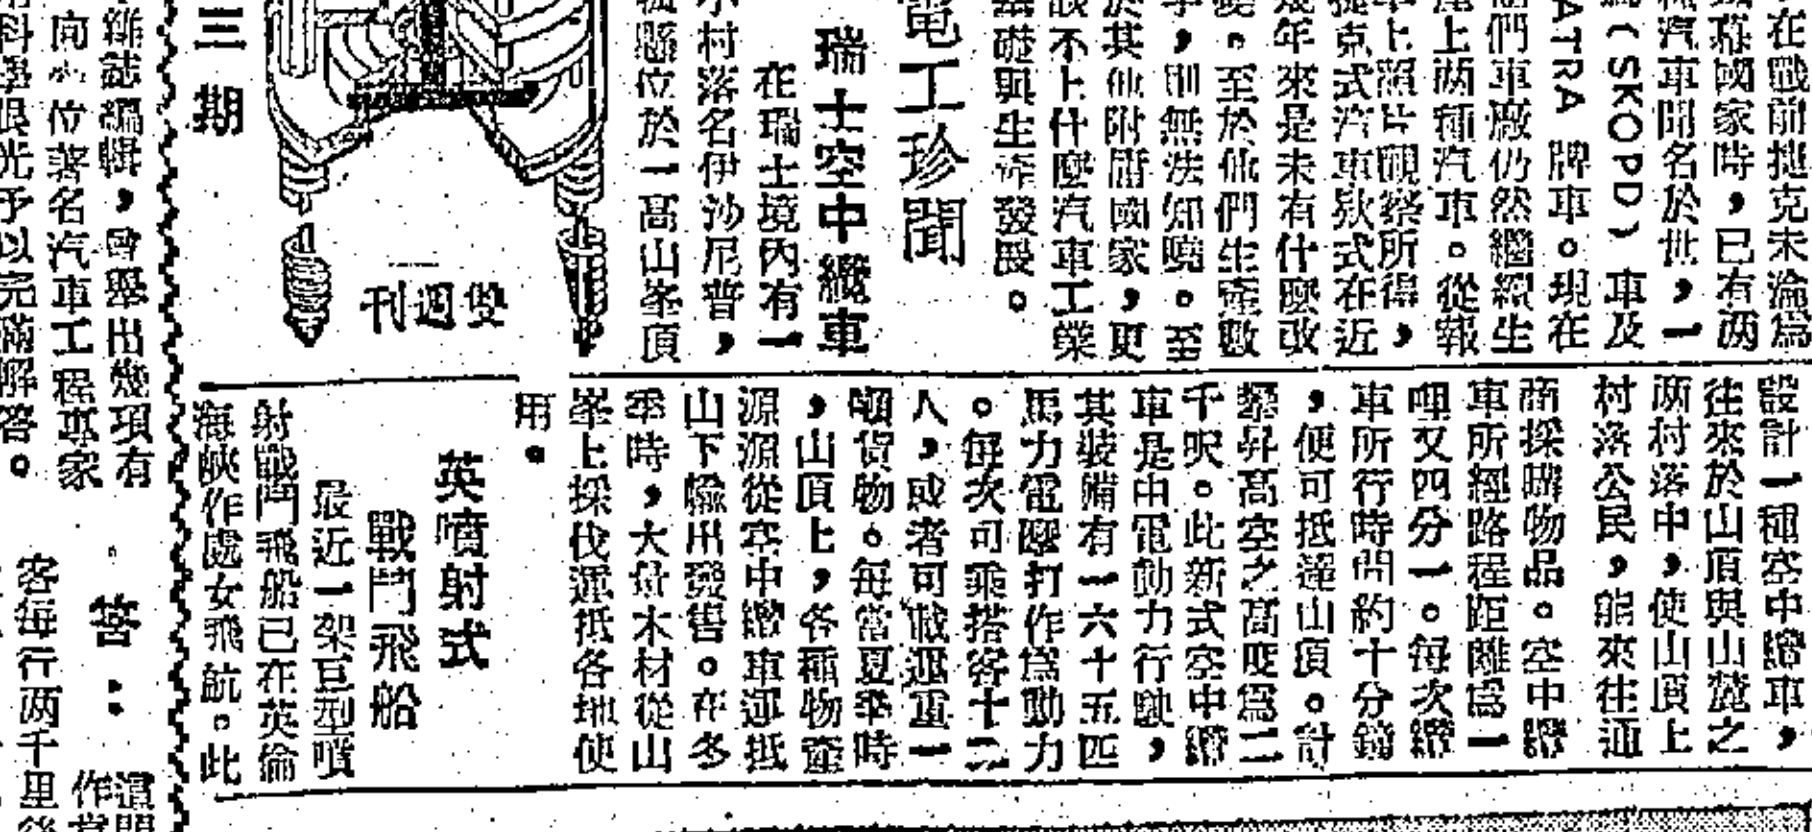 在戰前捷克未淪爲
幕國家時，已有两
汽車聞名於世，一
（SKOPD）車及
ATRA 牌車。現在
們車廠仍然繼續生
上两種汽車。從報
車上照片觀察所得，
捷克式汽車欵式在近
幾年來是未有什麼改
變。至於他們生產數
字，則無法知曉。至
於其他附庸國家，更
談不上什麼汽車工業
基礎與生產發展。
電工珍聞
瑞士空中纜車
在瑞士境內有一
小村落名伊沙尼普，
孤懸位於一高山峯頂
設計一種空中纜車，
往來於山頂與山麓之
两村落中，使山頂上
村落公民，能來往通
商採購物品。空中纜
車所經路程距離爲一
哩又四分一。每次纜
車所行時間約十分鐘
，便可抵達山頂。計
攀昇高空之高度爲二
千呎。此新式空中纜
車是由電動力行駛，
其裝備有一六十五匹
馬力電摩打作爲動力
。每次可乘搭客十二
人，或者可載運重一
噸貨物。每當夏季時
，山頂上，各種物產
源源從空中纜車運抵
山下輸出發售。在冬
季時，大量木材從山
峯上採伐運抵各地使
用。
英噴射式
戰鬥飛船
最近一架巨型噴
射戰鬥飛船已在英倫
海陝作處女飛航。此
三期
雙週刊
雜誌編輯，曾舉出幾項有
向小位著名汽車工程專家
科學眼光予以完滿解答。
答：
還問
作當
客每行两千里後